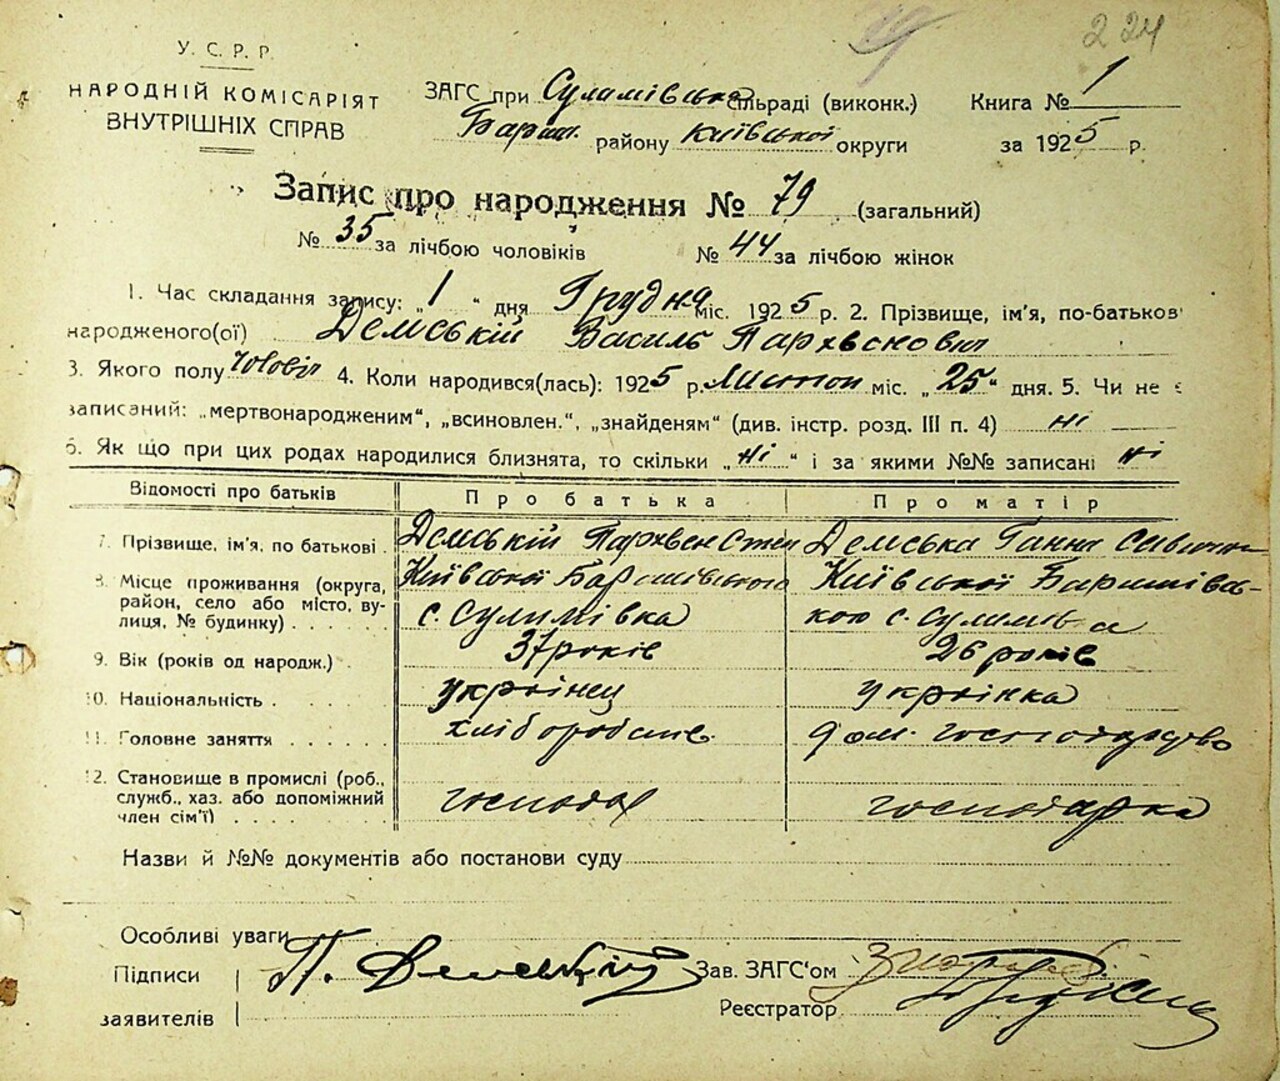 224
У. С. Р. Р.
НАРОДНІЙ КОМІСАРІЯТ
ВНУТРІШНІХ СПРАВ
ЗАГС при Сулимівська сільраді (виконк.)
Бариш. району Київської округи
Книга № 1
за 1925 р.
Запис про народження № 79 (загальний)
№ 35 за лічбою чоловіків № 44 за лічбою жінок
1. Час складання запису: „1“ дня Грудня міс. 1925 р. 2. Прізвище, ім'я, по-батькові
народженого(ої) Демській Василь Пархвенович
3. Якого полу чоловіч 4. Коли народився(лась): 1925 р. Листоп міс. „25“ дня. 5. Чи не є
записаний: „мертвонародженим“, „всиновлен.“, „знайденям“ (див. інстр. розд. III п. 4) ні
6. Як що при цих родах народилися близнята, то скільки „ні“ і за якими №№ записані ні
Відомості про батьків Про батька Про матір
7. Прізвище, ім'я, по батькові . Демській Пархвен Степ Демська Ганна
8. Місце проживання (округа, район, село або місто, вулиця, № будинку) . . . . . Київської Баришівського с. Сулимівка Київської Баришівською с. Сулимівка
9. Вік (років од народж.) . 37 років 26 років
10. Національність . . . . . українец українка
11. Головне заняття . . . . . . хліборобств. дом. господарство
12. Становище в промислі (роб., служб., хаз. або допоміжний член сім'ї) . . . . господар господарка
Назви й №№ документів або постанови суду
Особливі уваги
Підписи
заявителів
П. Демській
Зав. ЗАГС'ом
Реєстратор